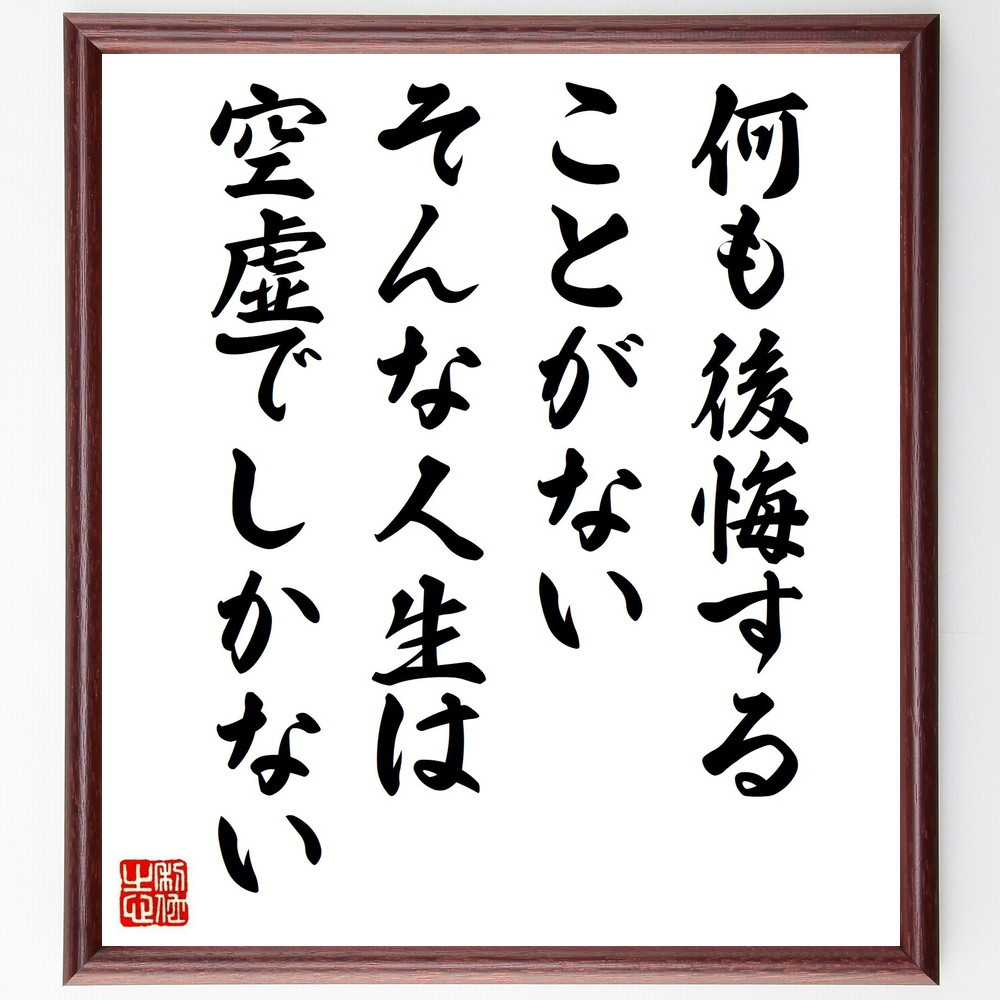 何も後悔する
ことがない
そんな人生は
空虚でしかない